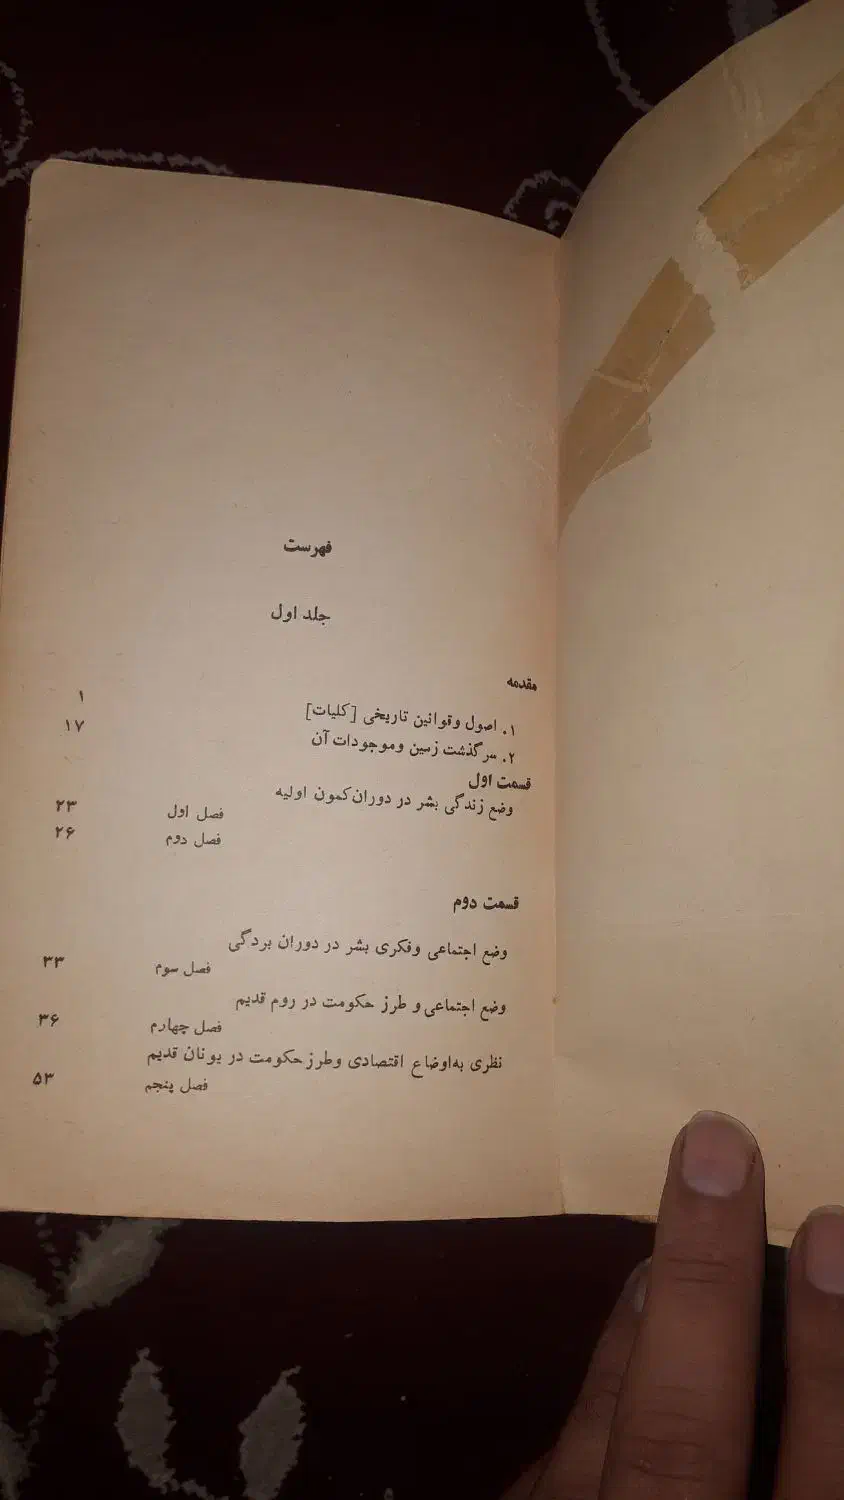 فهرست
جلد اول
مقدمه
۱. اصول وقوانین تاریخی [کلیات] ۱
۲. سرگذشت زمین وموجودات آن ۱۷
قسمت اول
وضع زندگی بشر در دوران کمون اولیه
فصل اول ۲۳
فصل دوم ۲۶
قسمت دوم
وضع اجتماعی وفکری بشر در دوران بردگی
فصل سوم ۳۳
وضع اجتماعی و طرز حکومت در روم قدیم
فصل چهارم ۳۶
نظری به‌اوضاع اقتصادی وطرز حکومت در یونان قدیم
فصل پنجم ۵۳